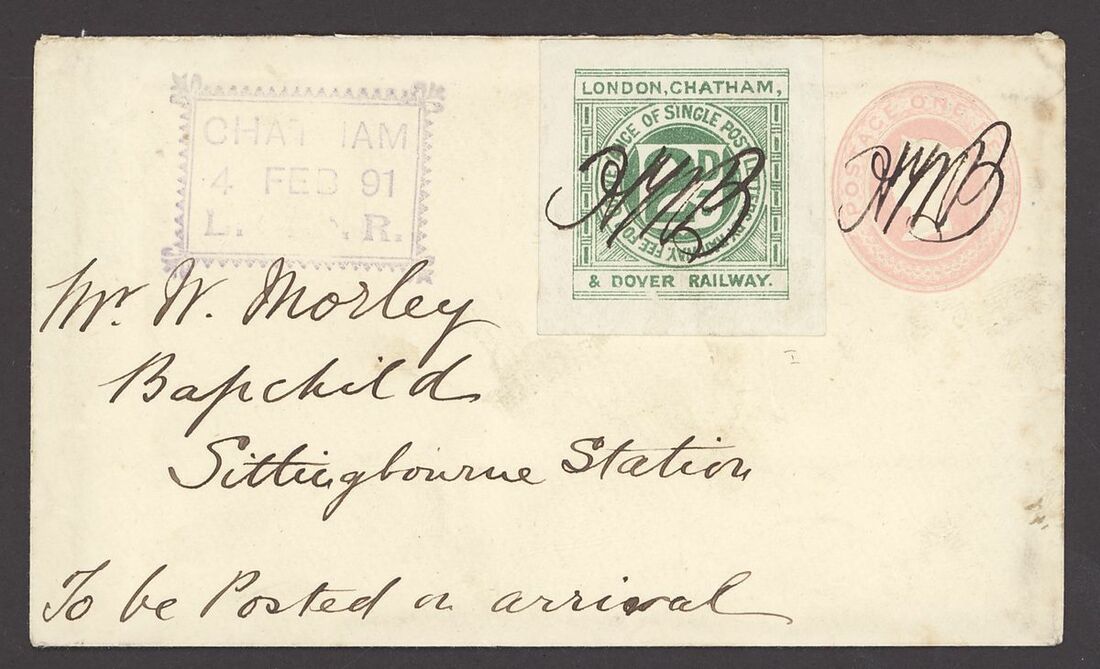 CHATHAM
4 FEB 91
L. R.
LONDON, CHATHAM,
OF SINGLE POST
2D
FEE FO
& DOVER RAILWAY.
POSTAGE ONE
Mr. W. Morley
Bapchild
Sittingbourne Station
To be Posted on arrival